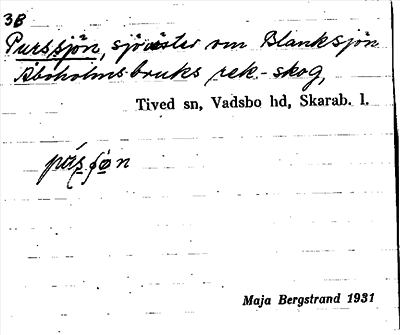 3B
Purssjön, sjö öster om Blanksjön
Åboholms bruks rek.-skog,
Tived sn, Vadsbo hd, Skarab. l.
Maja Bergstrand 1931